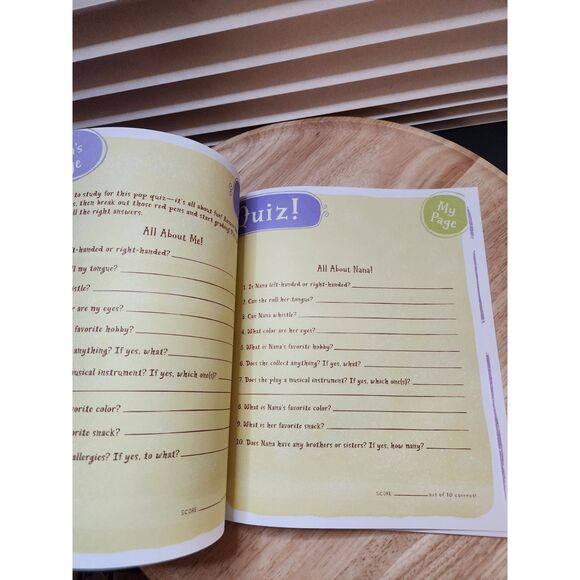 to study for this pop quiz—it's all about fun!
then break out those red pens and start grading!
the right answers.
All About Me!
or right-handed?
my tongue?
are my eyes?
favorite hobby?
anything? If yes, what?
musical instrument? If yes, which one(s)?
color?
snack?
allergies? If yes, to what?
SCORE
Quiz!
My
Page
All About Nana!
1. Is Nana left-handed or right-handed?
2. Can she roll her tongue?
3. Can Nana whistle?
4. What color are her eyes?
5. What is Nana's favorite hobby?
6. Does she collect anything? If yes, what?
7. Does she play a musical instrument? If yes, which one(s)?
8. What is Nana's favorite color?
9. What is her favorite snack?
10. Does Nana have any brothers or sisters? If yes, how many?
SCORE out of 10 correct!